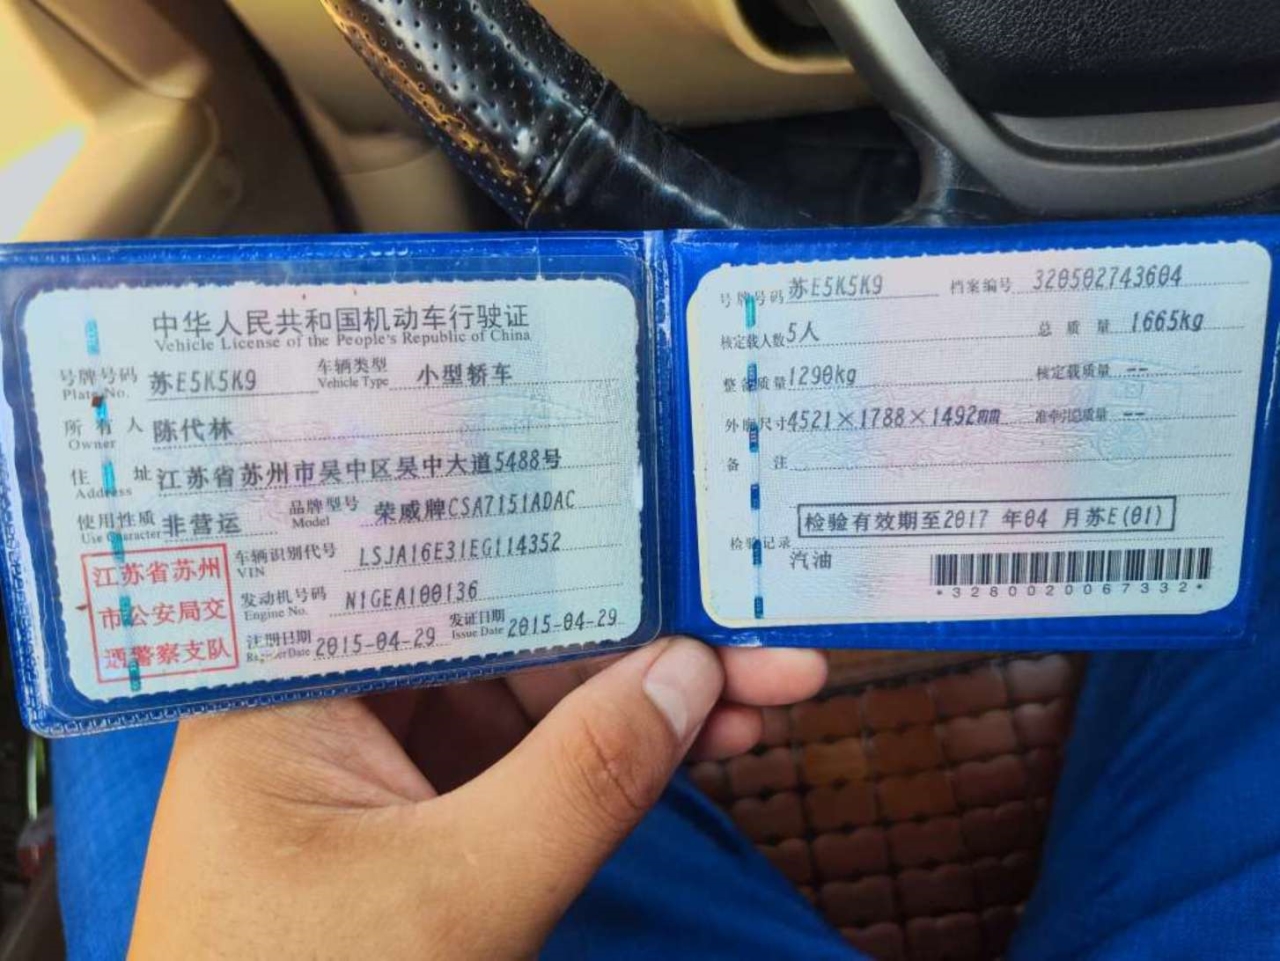 中华人民共和国机动车行驶证
Vehicle License of the People's Republic of China
号牌号码 苏E5K5K9 车辆类型 小型轿车
Plate No. Vehicle Type
所有人 陈代林
Owner
住址 江苏省苏州市吴中区吴中大道5488号
Address
使用性质 非营运 品牌型号 荣威牌CSA7151ADAC
Use Character Model
江苏省苏州
市公安局交
通警察支队
车辆识别代号 LSJA16E31EG114352
VIN
发动机号码 N1GEA100136
Engine No.
注册日期 2015-04-29 发证日期 2015-04-29
Register Date Issue Date
号牌号码 苏E5K5K9 档案编号 320502743604
核定载人数 5人 总质量 1665kg
整备质量 1290kg 核定载质量 --
外廓尺寸 4521×1788×1492mm 准牵引总质量 --
备注
检验有效期至2017 年04 月苏E(01)
检验记录
汽油
*3280020067332*